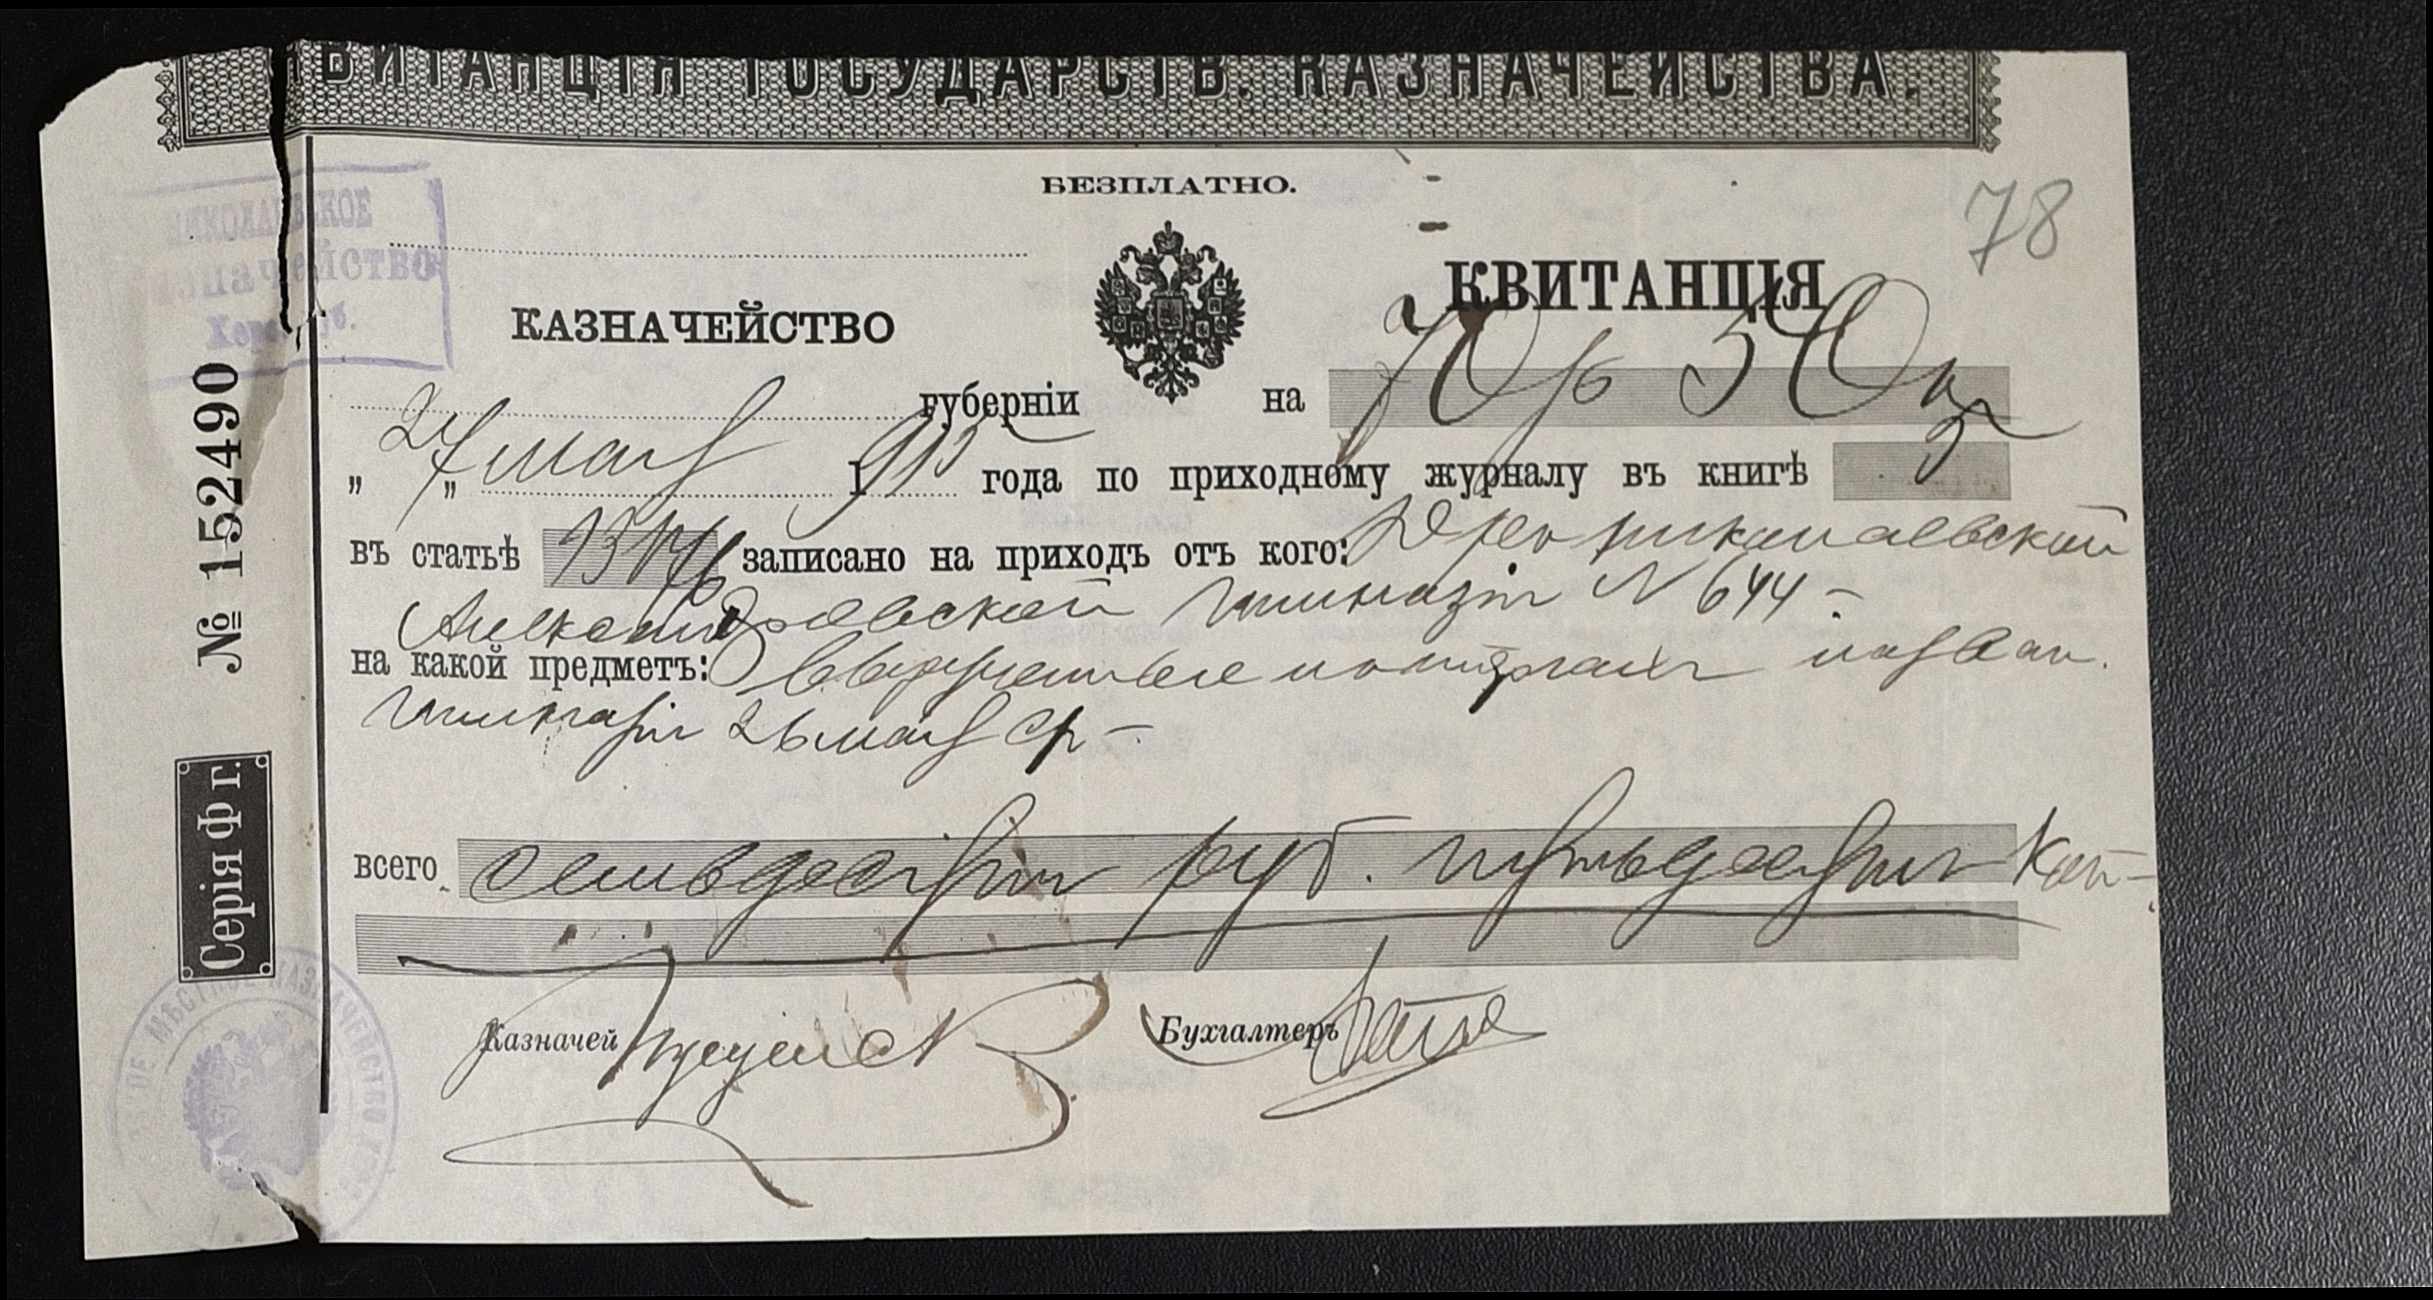 КВИТАНЦІЯ ГОСУДАРСТВ. КАЗНАЧЕЙСТВА.
БЕЗПЛАТНО.
78
НИКОЛАЕВСКОЕ
КАЗНАЧЕЙСТВО
Херс. губ.
КАЗНАЧЕЙСТВО
КВИТАНЦІЯ
губерніи на 70 р 50 к
„27„ мар 1913 года по приходному журналу въ книгѣ
въ статьѣ записано на приходъ отъ кого: Дир николаевской
Александровской гимназіи N 644 -
на какой предметъ:
гимназіи 26 мар ср -
всего семьдесят руб. пятьдесят коп -
Казначей
Бухгалтеръ
№ 152490
Серія Ф г.
МѢСТНОЕ КАЗНАЧЕЙСТВО